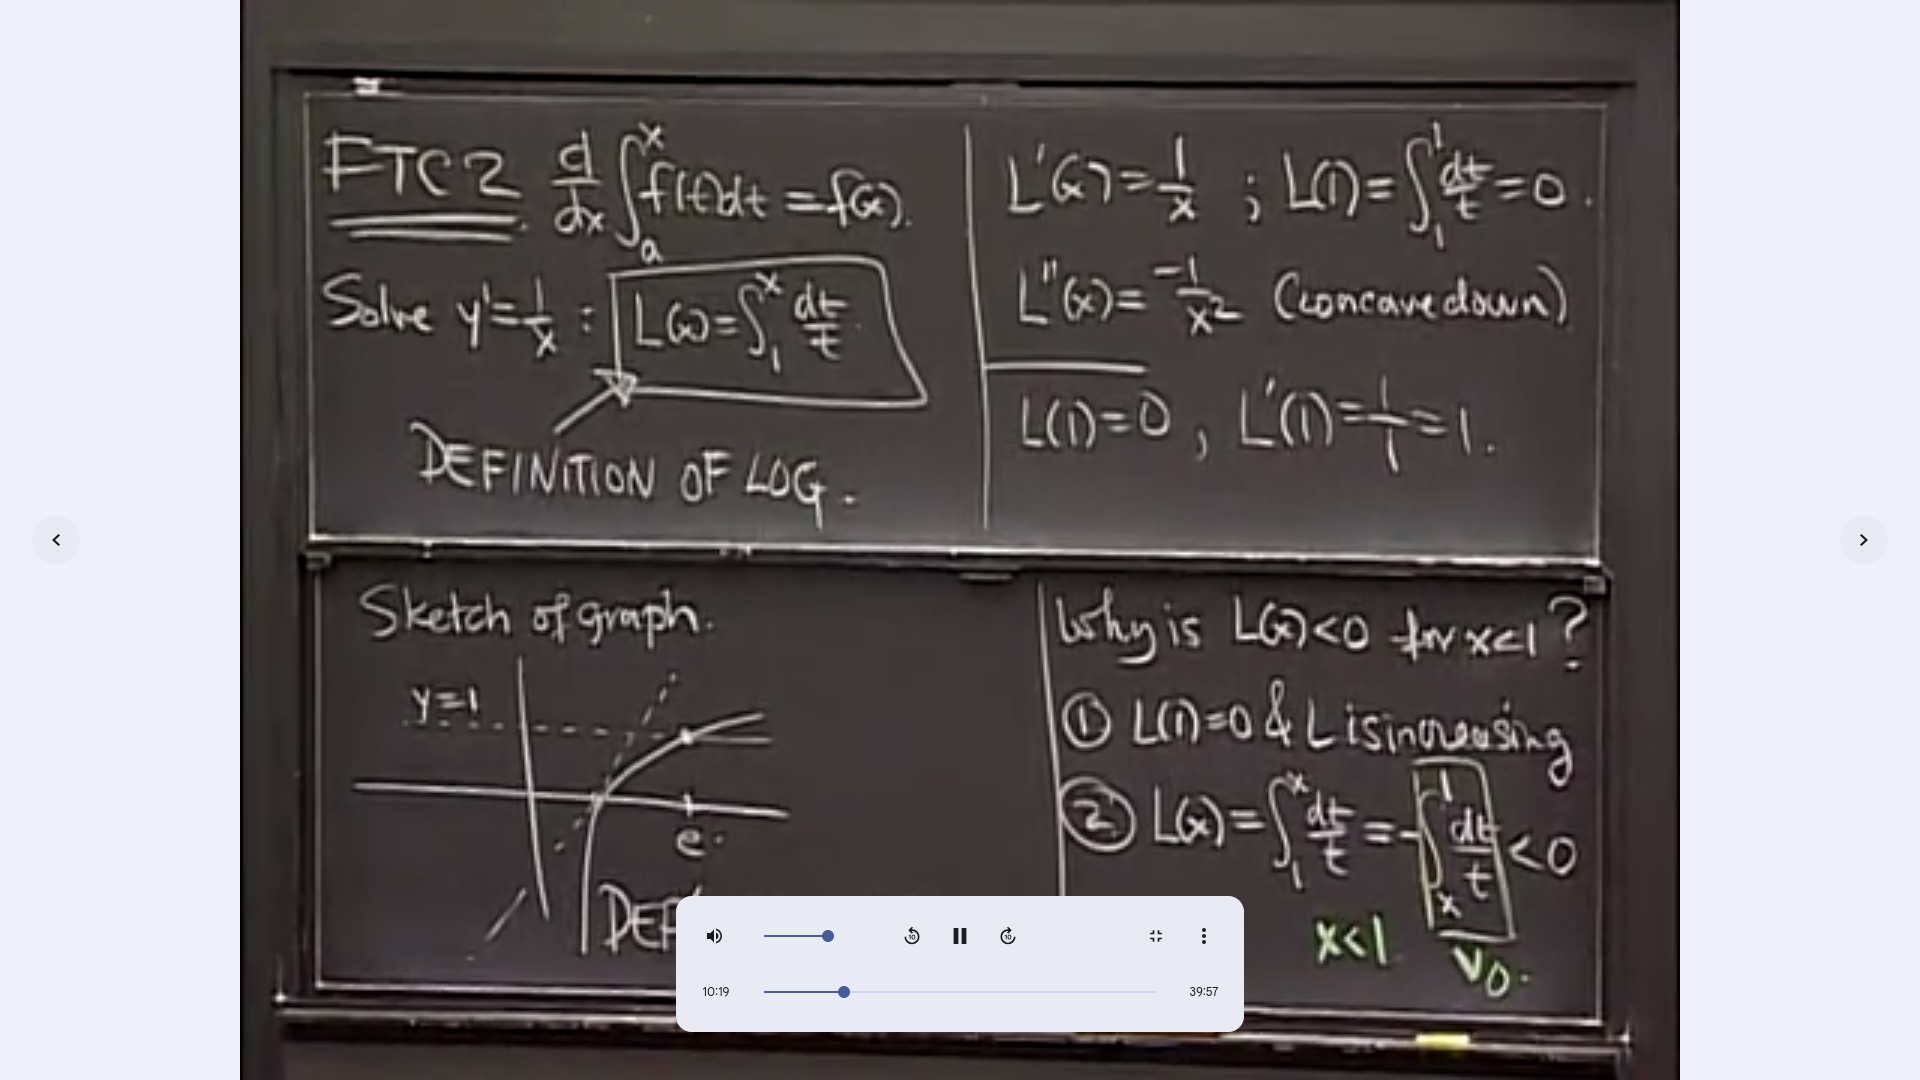 FTC2. d/dx ∫_a^x f(t)dt = f(x).
Solve y' = 1/x : L(x) = ∫_1^x dt/t
DEFINITION OF LOG.
L'(x) = 1/x ; L(1) = ∫_1^1 dt/t = 0.
L''(x) = -1/x² (concave down)
L(1) = 0, L'(1) = 1/1 = 1.
Sketch of graph.
y=1
e.
Why is L(x)<0 for x<1?
① L(1)=0 & L is increasing
② L(x) = ∫_1^x dt/t = -∫_x^1 dt/t < 0
x<1
v 0.
10:19
39:57